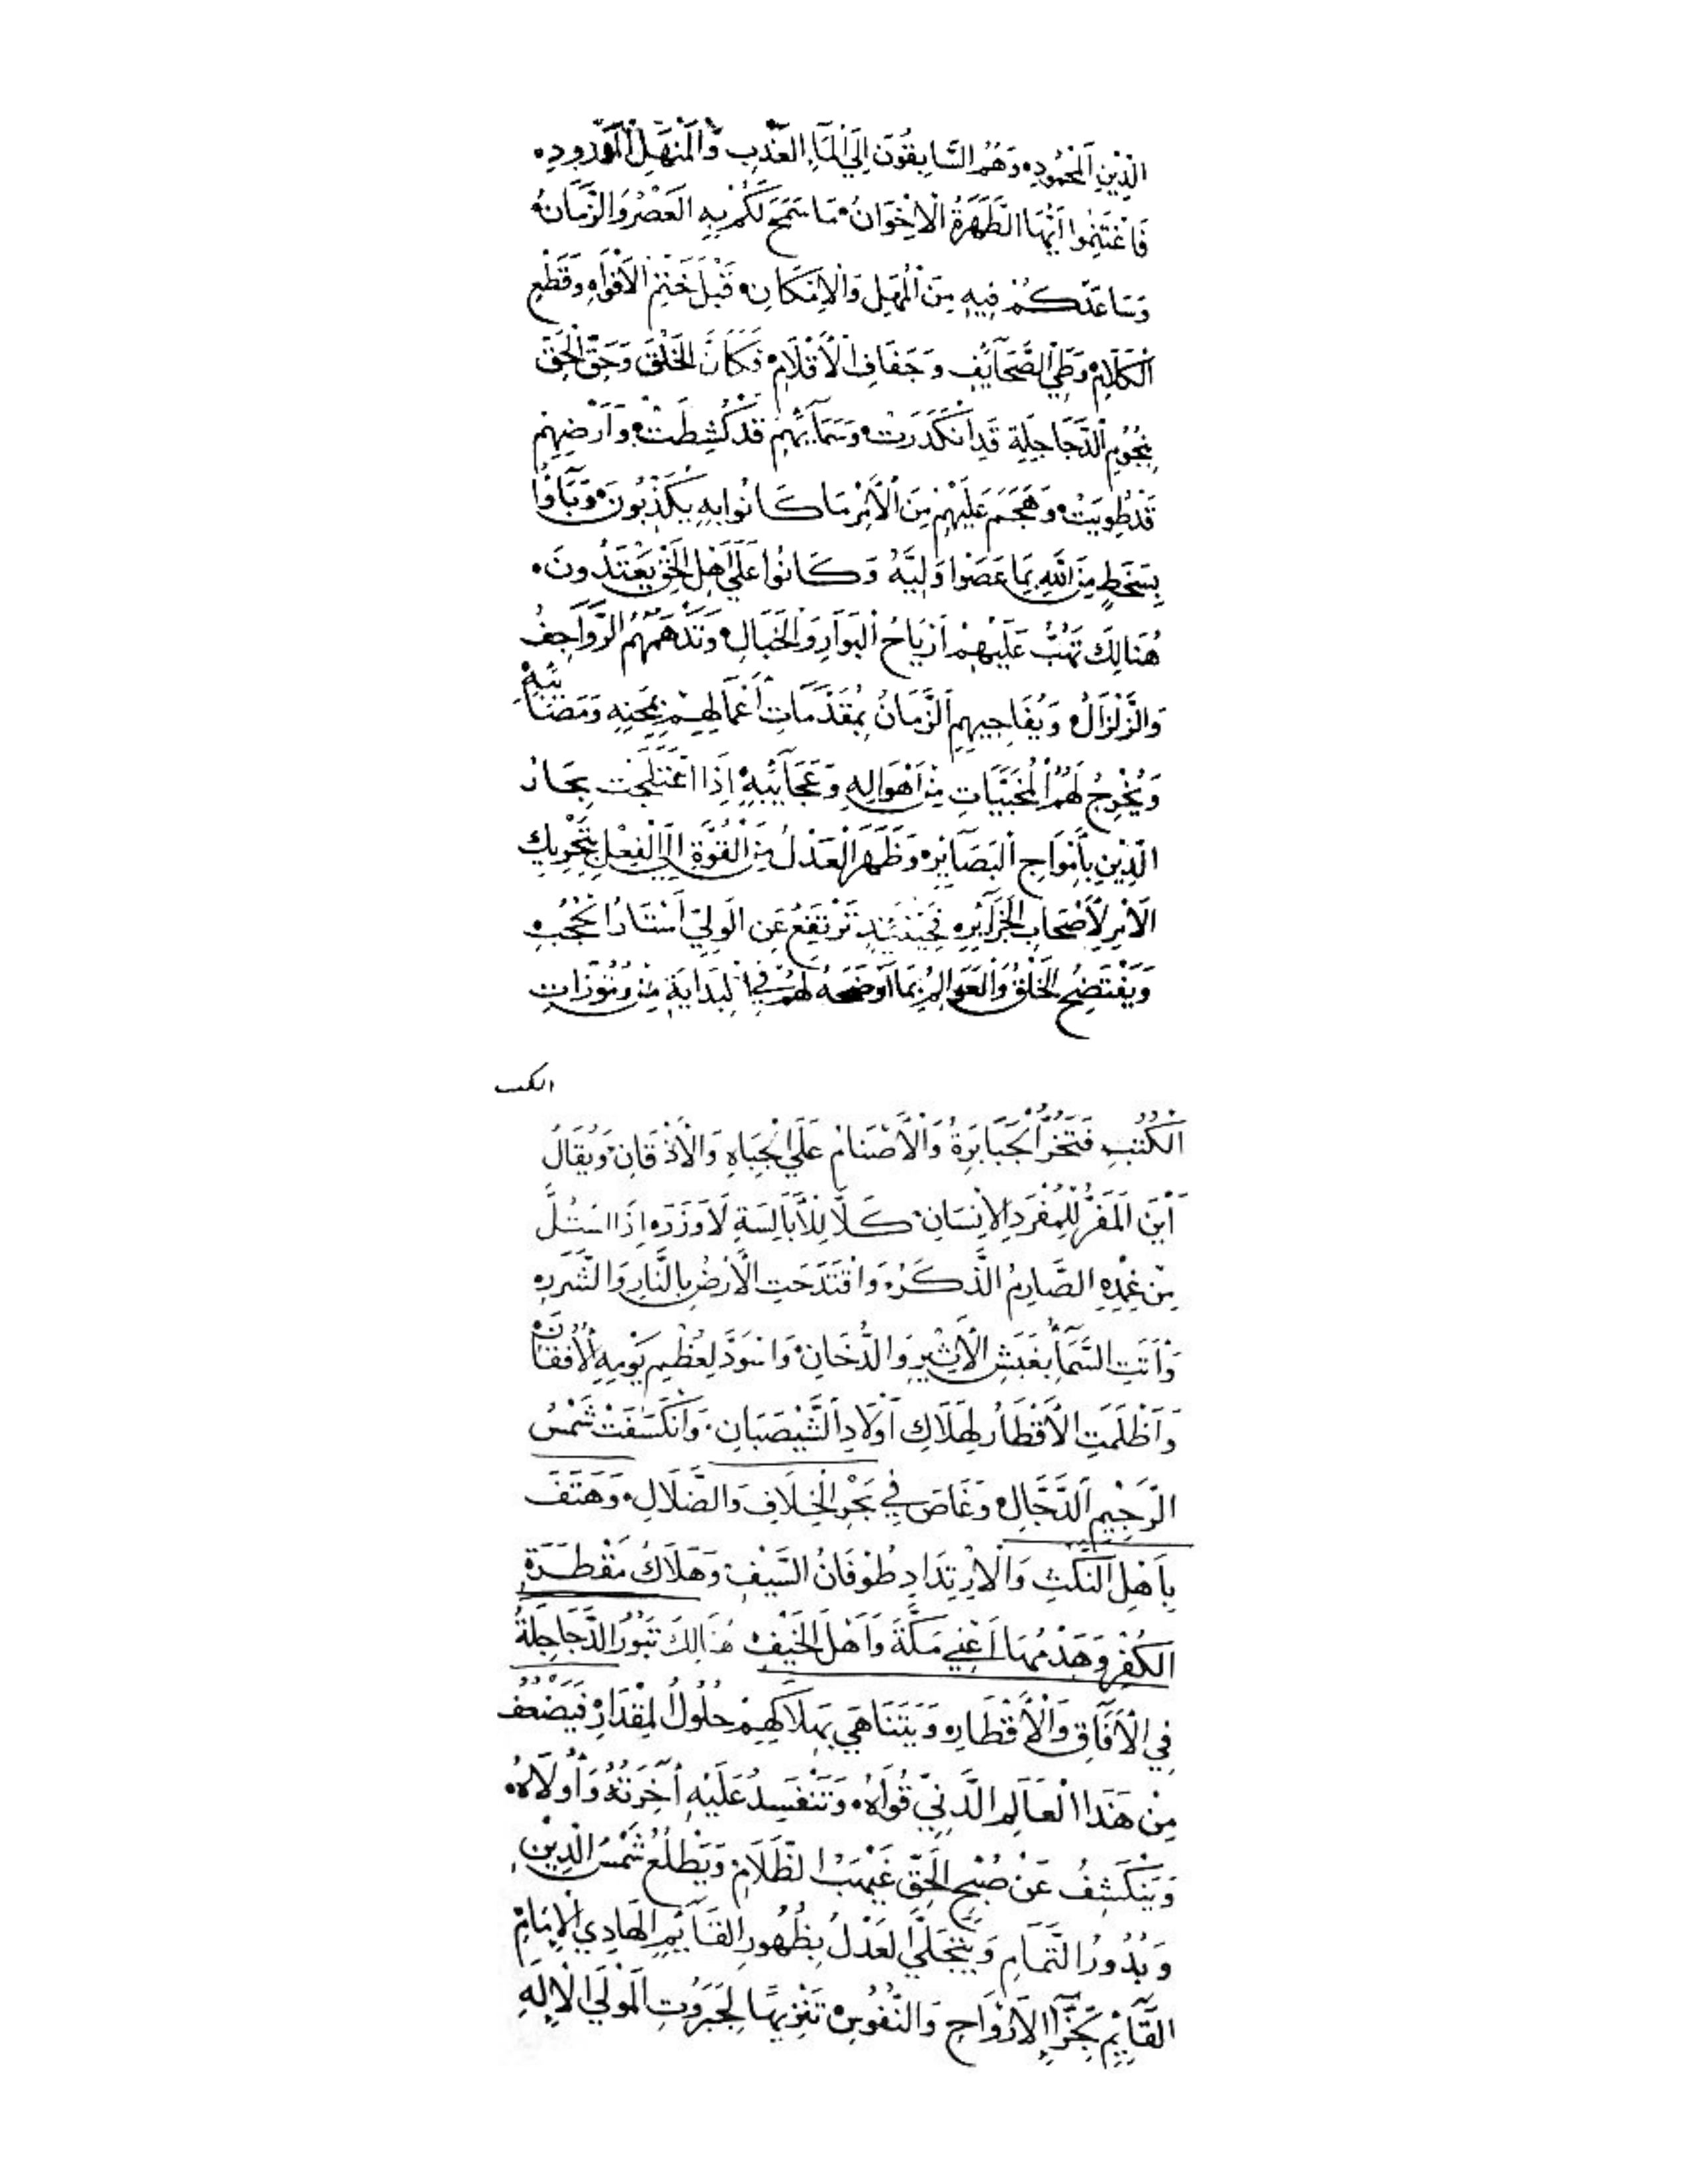 الدِّيْنِ اَلْمَحْمُودِ، وَهُمُ السَّابِقُوْنَ اِلَيْ الْمَآءِ الْعَذْبِ وَالْمَنْهَلِ الْمَوْرُودِ،
فَاغْتَنِمُوا اَيُّهَا الطَّهَرَةُ الْاِخْوَانُ، مَا سَمَحَ لَكُمْ بِهِ العَصْرُ وَالزَّمَانُ،
وَسَاعَدَكُمْ فِيهِ مِنَ الْمَهَلِ وَالْاِمْكَانِ، قَبْلَ خَتْمِ الْاَفْوَاهِ وَقَطْعِ
الْكَلَامِ، وَطَيِّ الصَّحَآئِفِ وَجَفَافِ الْاَقْلَامِ، فَكَاَنَّ الخَلْقَ وَحَقِّ الْحَقِّ
بِنُجُوْمِ الدَّجَاجِلَةِ قَدِ انْكَدَرَتْ، وَسَمَآئِهِمْ قَدْ كُشِطَتْ، وَاَرْضِهِمْ
قَدْ طُوِيَتْ، وَهَجَمَ عَلَيْهِمْ مِنَ الْاَمْرِ مَا كَانُوا بِهِ يُكَذِّبُونَ، وَبَآؤُا
بِسَخَطٍ مِنَ اللهِ بِمَا عَصَوْا وَلِيَّهُ وَكَانُوْا عَلَيْ اَهْلِ الْحَقِّ يَعْتَدُونَ.
هُنَالِكَ تَهُبُّ عَلَيْهِمْ اَرْيَاحُ الْبَوَارِ وَالْخَبَالِ، وَتَدْهَمُهُمُ الرَّوَاجِفُ
وَالزَّلْزَالُ، وَيُفَاجِيهِمِ الزَّمَانُ بِمُقَدَّمَاتِ اَعْمَالِهِمْ بِمِحَنِهِ وَمَصَائِبِهِ،
وَيُخْرِجُ لَهُمُ الْمُخَبَّيَاتِ مِنْ اَهْوَالِهِ وَعَجَآئِبِهِ، اِذَا اعْتَلَجَتْ بِحَارُ
الدِّيْنِ بِاَمْوَاجِ الْبَصَآئِرِ، وَظَهَرَ الْعَدْلُ مِنَ الْقُوَّةِ اِلَي الْفِعْلِ بِتَحْرِيكِ
الْاَمْرِ لِاَصْحَابِ الْجَزَآئِرِ، فَحِيْنَئِذٍ تَرْتَفِعُ عَنِ الْوَلِيِّ اَسْتَارُ الْحُجُبِ،
وَيَفْتَضِحُ الْخَلْقُ وَالْعَوَالِمُ بِمَا اَوْضَحَهُ لَهُمْ فِي الْبِدَايَةِ مِنْ مَرْمُوزَاتِ
الكتب
الْكُتُبِ، فَتَخُرُّ الْجَبَابِرَةُ وَالْاَصْنَامُ عَلَيْ الْجِبَاهِ وَالْاَذْقَانِ، وَيُقَالُ
اَيْنَ الْمَفَرُّ لِلْمُفْرَدِ الْاِنْسَانِ، كَلَّا لِلْاَبَالِسَةِ لَا وَزَرَ، اِذَا اسْتُلَّ
مِنْ غِمْدِهِ الصَّارِمُ الذَّكَرُ، وَاقْتَدَحَتِ الْاَرْضُ بِالنَّارِ وَالشَّرَرِ،
وَاَتَتِ السَّمَآءُ بِغَبَشِ الْاَثِيْرِ وَالدُّخَانِ، وَاسْوَدَّ لِعُظْمِ يَوْمِهِ الْاُفُقَانِ،
وَاَظْلَمَتِ الْاَقْطَارُ لِهَلَاكِ اَوْلَادِ الشَّيْصَبَانِ. وَانْكَسَفَتْ شَمْسُ
الرَّجِيْمِ الدَّجَّالِ، وَغَاصَ فِي بَحْرِ الْخِلَافِ وَالضَّلَالِ، وَهَتَفَ
بِاَهْلِ النَّكْثِ وَالْاِرْتِدَادِ طُوْفَانُ السَّيْفِ، وَهَلَاكُ مَقْطَرَةِ
الْكُفْرِ وَهَدْمُهَا اَعْنِي مَكَّةَ وَاَهْلَ الْخَيْفِ، هُنَالِكَ تَبُوْرُ الدَّجَاجِلَةُ
فِي الْاَفَآقِ وَالْاَقْطَارِ، وَيَتَنَاهَي بِهَلَاكِهِمْ حُلُولُ الْمِقْدَارِ، فَيَضْعُفُ
مِنْ هَذَا الْعَالَمِ الدَّنِيِّ قُوَاهُ، وَتَنْفَسِدُ عَلَيْهِ اُخْرَتُهُ وَاُوْلَاهُ.
وَيَنْكَشِفُ عَنْ صُبْحِ الْحَقِّ غَيْهَبُ الظَّلَامِ، وَيَطْلُعُ شَمْسُ الدِّيْنِ
وَبُدُورُ التَّمَامِ وَيَتَجَلَّي الْعَدْلُ بِظُهُورِ القَآئِمِ الْهَادِي الْاِمَامِ،
القَآئِمِ بِجَزَآءِ الْاَرْوَاحِ وَالنُّفُوسِ، تَنْزِيهًا لِجَبَرُوتِ الْمَوْلَي الْاِلَهِ